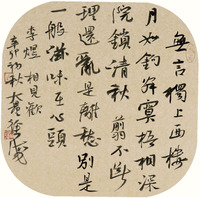 無言獨上西樓
月如鉤寂寞梧桐深
院鎖清秋翦不斷
理還亂是離愁別是
一般滋味在心頭
李煜相見歡
辛卯初秋